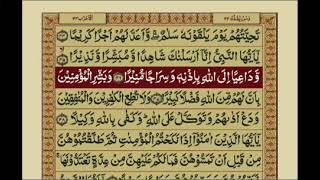 ومن يقنت ٢٢ الاحزاب ٣٣
تَحِيَّتُهُمْ يَوْمَ يَلْقَوْنَهٗ سَلٰمٌ ۚ وَاَعَدَّ لَهُمْ اَجْرًا كَرِيْمًا
يٰۤاَيُّهَا النَّبِيُّ اِنَّاۤ اَرْسَلْنٰكَ شَاهِدًا وَّمُبَشِّرًا وَّنَذِيْرًا
وَّدَاعِيًا اِلَى اللّٰهِ بِاِذْنِهٖ وَسِرَاجًا مُّنِيْرًا وَبَشِّرِ الْمُؤْمِنِيْنَ
بِاَنَّ لَهُمْ مِّنَ اللّٰهِ فَضْلًا كَبِيْرًا وَلَا تُطِعِ الْكٰفِرِيْنَ وَالْمُنٰفِقِيْنَ
وَدَعْ اَذٰىهُمْ وَتَوَكَّلْ عَلَى اللّٰهِ ۚ وَكَفٰى بِاللّٰهِ وَكِيْلًا
يٰۤاَيُّهَا الَّذِيْنَ اٰمَنُوْۤا اِذَا نَكَحْتُمُ الْمُؤْمِنٰتِ ثُمَّ طَلَّقْتُمُوْهُنَّ
مِنْ قَبْلِ اَنْ تَمَسُّوْهُنَّ فَمَا لَكُمْ عَلَيْهِنَّ مِنْ عِدَّةٍ تَعْتَدُّوْنَهَا